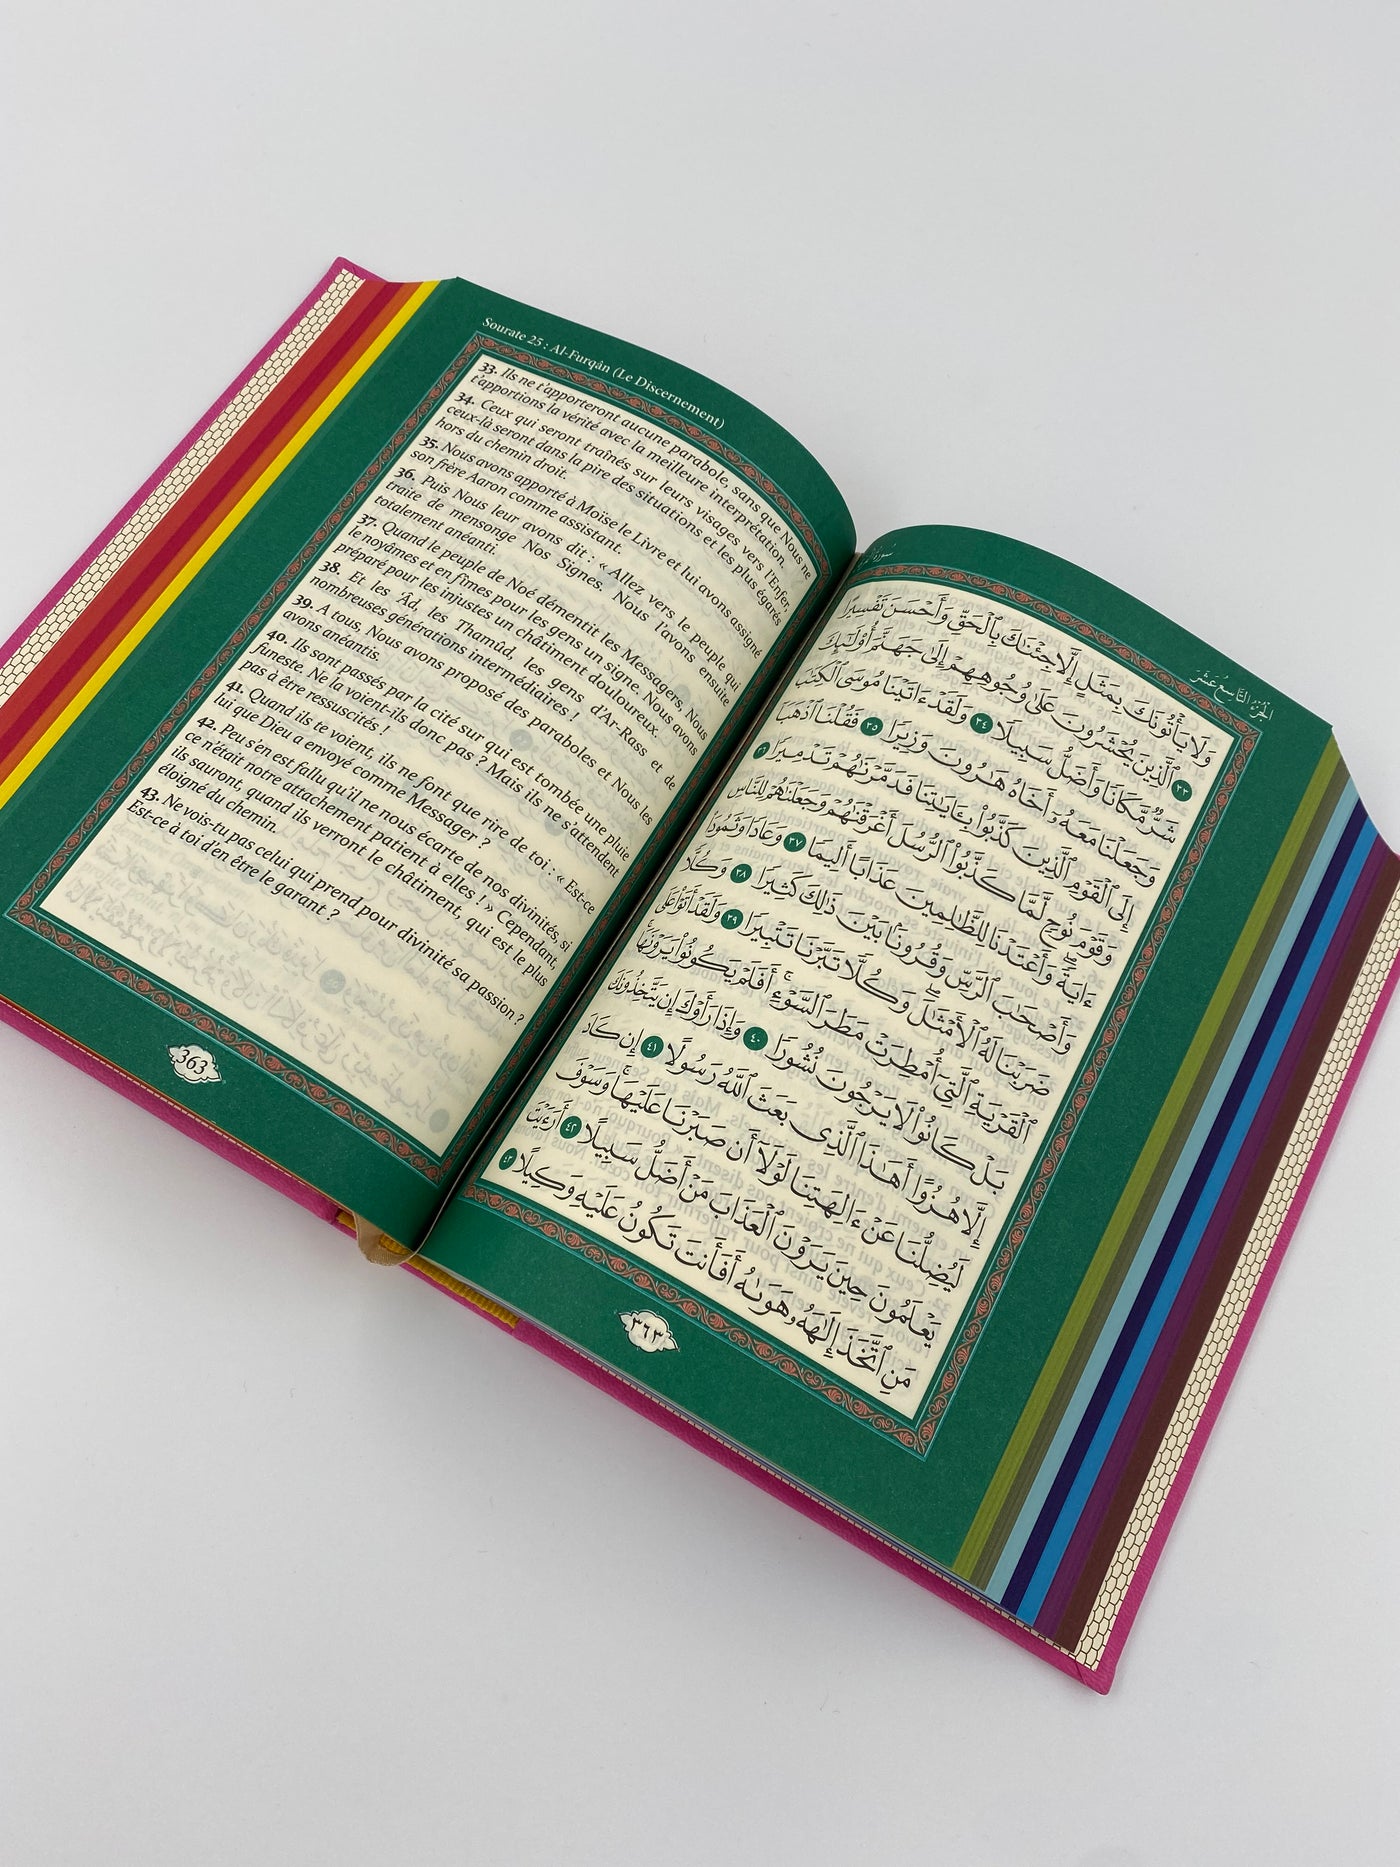 Sourate 25 : Al-Furqân (Le Discernement)
33. Ils ne t'apporteront aucune parabole, sans que Nous ne
t'apportions la vérité avec la meilleure interprétation.
34. Ceux qui seront traînés sur leurs visages vers l'Enfer,
ceux-là seront dans la pire des situations et les plus égarés
hors du chemin droit.
35. Nous avons apporté à Moïse le Livre et lui avons assigné
son frère Aaron comme assistant.
36. Puis Nous leur avons dit : « Allez vers le peuple qui
traite de mensonge Nos Signes. Nous l'avons ensuite
totalement anéanti.
37. Quand le peuple de Noé démentit les Messagers, Nous
le noyâmes et en fîmes pour les gens un signe. Nous avons
préparé pour les injustes un châtiment douloureux.
38. Et les 'Âd, les Thamûd, les gens d'Ar-Rass et de
nombreuses générations intermédiaires !
39. A tous, Nous avons proposé des paraboles et Nous les
avons anéantis.
40. Ils sont passés par la cité sur qui est tombée une pluie
funeste. Ne la voient-ils donc pas ? Mais ils ne s'attendent
pas à être ressuscités !
41. Quand ils te voient, ils ne font que rire de toi : « Est-ce
lui que Dieu a envoyé comme Messager ?
42. Peu s'en est fallu qu'il ne nous écarte de nos divinités, si
ce n'était notre attachement patient à elles ! » Cependant,
ils sauront, quand ils verront le châtiment, qui est le plus
éloigné du chemin.
43. Ne vois-tu pas celui qui prend pour divinité sa passion ?
Est-ce à toi d'en être le garant ?
363
الجُزْءُ التَّاسِعُ عَشَرَ
وَلَا يَأْتُونَكَ بِمَثَلٍ إِلَّا جِئْنَٰكَ بِٱلْحَقِّ وَأَحْسَنَ تَفْسِيرًا
٣٣ ٱلَّذِينَ يُحْشَرُونَ عَلَىٰ وُجُوهِهِمْ إِلَىٰ جَهَنَّمَ أُو۟لَٰٓئِكَ
شَرٌّ مَّكَانًا وَأَضَلُّ سَبِيلًا ٣٤ وَلَقَدْ ءَاتَيْنَا مُوسَى ٱلْكِتَٰبَ
وَجَعَلْنَا مَعَهُۥٓ أَخَاهُ هَٰرُونَ وَزِيرًا ٣٥ فَقُلْنَا ٱذْهَبَآ
إِلَى ٱلْقَوْمِ ٱلَّذِينَ كَذَّبُوا۟ بِـَٔايَٰتِنَا فَدَمَّرْنَٰهُمْ تَدْمِيرًا ٣٦
وَقَوْمَ نُوحٍ لَّمَّا كَذَّبُوا۟ ٱلرُّسُلَ أَغْرَقْنَٰهُمْ وَجَعَلْنَٰهُمْ لِلنَّاسِ
ءَايَةً ۖ وَأَعْتَدْنَا لِلظَّٰلِمِينَ عَذَابًا أَلِيمًا ٣٧ وَعَادًا وَثَمُودَا۟
وَأَصْحَٰبَ ٱلرَّسِّ وَقُرُونًۢا بَيْنَ ذَٰلِكَ كَثِيرًا ٣٨ وَكُلًّا
ضَرَبْنَا لَهُ ٱلْأَمْثَٰلَ ۖ وَكُلًّا تَبَّرْنَا تَتْبِيرًا ٣٩ وَلَقَدْ أَتَوْا۟ عَلَى
ٱلْقَرْيَةِ ٱلَّتِىٓ أُمْطِرَتْ مَطَرَ ٱلسَّوْءِ ۚ أَفَلَمْ يَكُونُوا۟ يَرَوْنَهَا ۚ
بَلْ كَانُوا۟ لَا يَرْجُونَ نُشُورًا ٤٠ وَإِذَا رَأَوْكَ إِن يَتَّخِذُونَكَ
إِلَّا هُزُوًا أَهَٰذَا ٱلَّذِى بَعَثَ ٱللَّهُ رَسُولًا ٤١ إِن كَادَ
لَيُضِلُّنَا عَنْ ءَالِهَتِنَا لَوْلَآ أَن صَبَرْنَا عَلَيْهَا ۚ وَسَوْفَ
يَعْلَمُونَ حِينَ يَرَوْنَ ٱلْعَذَابَ مَنْ أَضَلُّ سَبِيلًا ٤٢ أَرَءَيْتَ
مَنِ ٱتَّخَذَ إِلَٰهَهُۥ هَوَىٰهُ أَفَأَنتَ تَكُونُ عَلَيْهِ وَكِيلًا ٤٣
٣٦٣